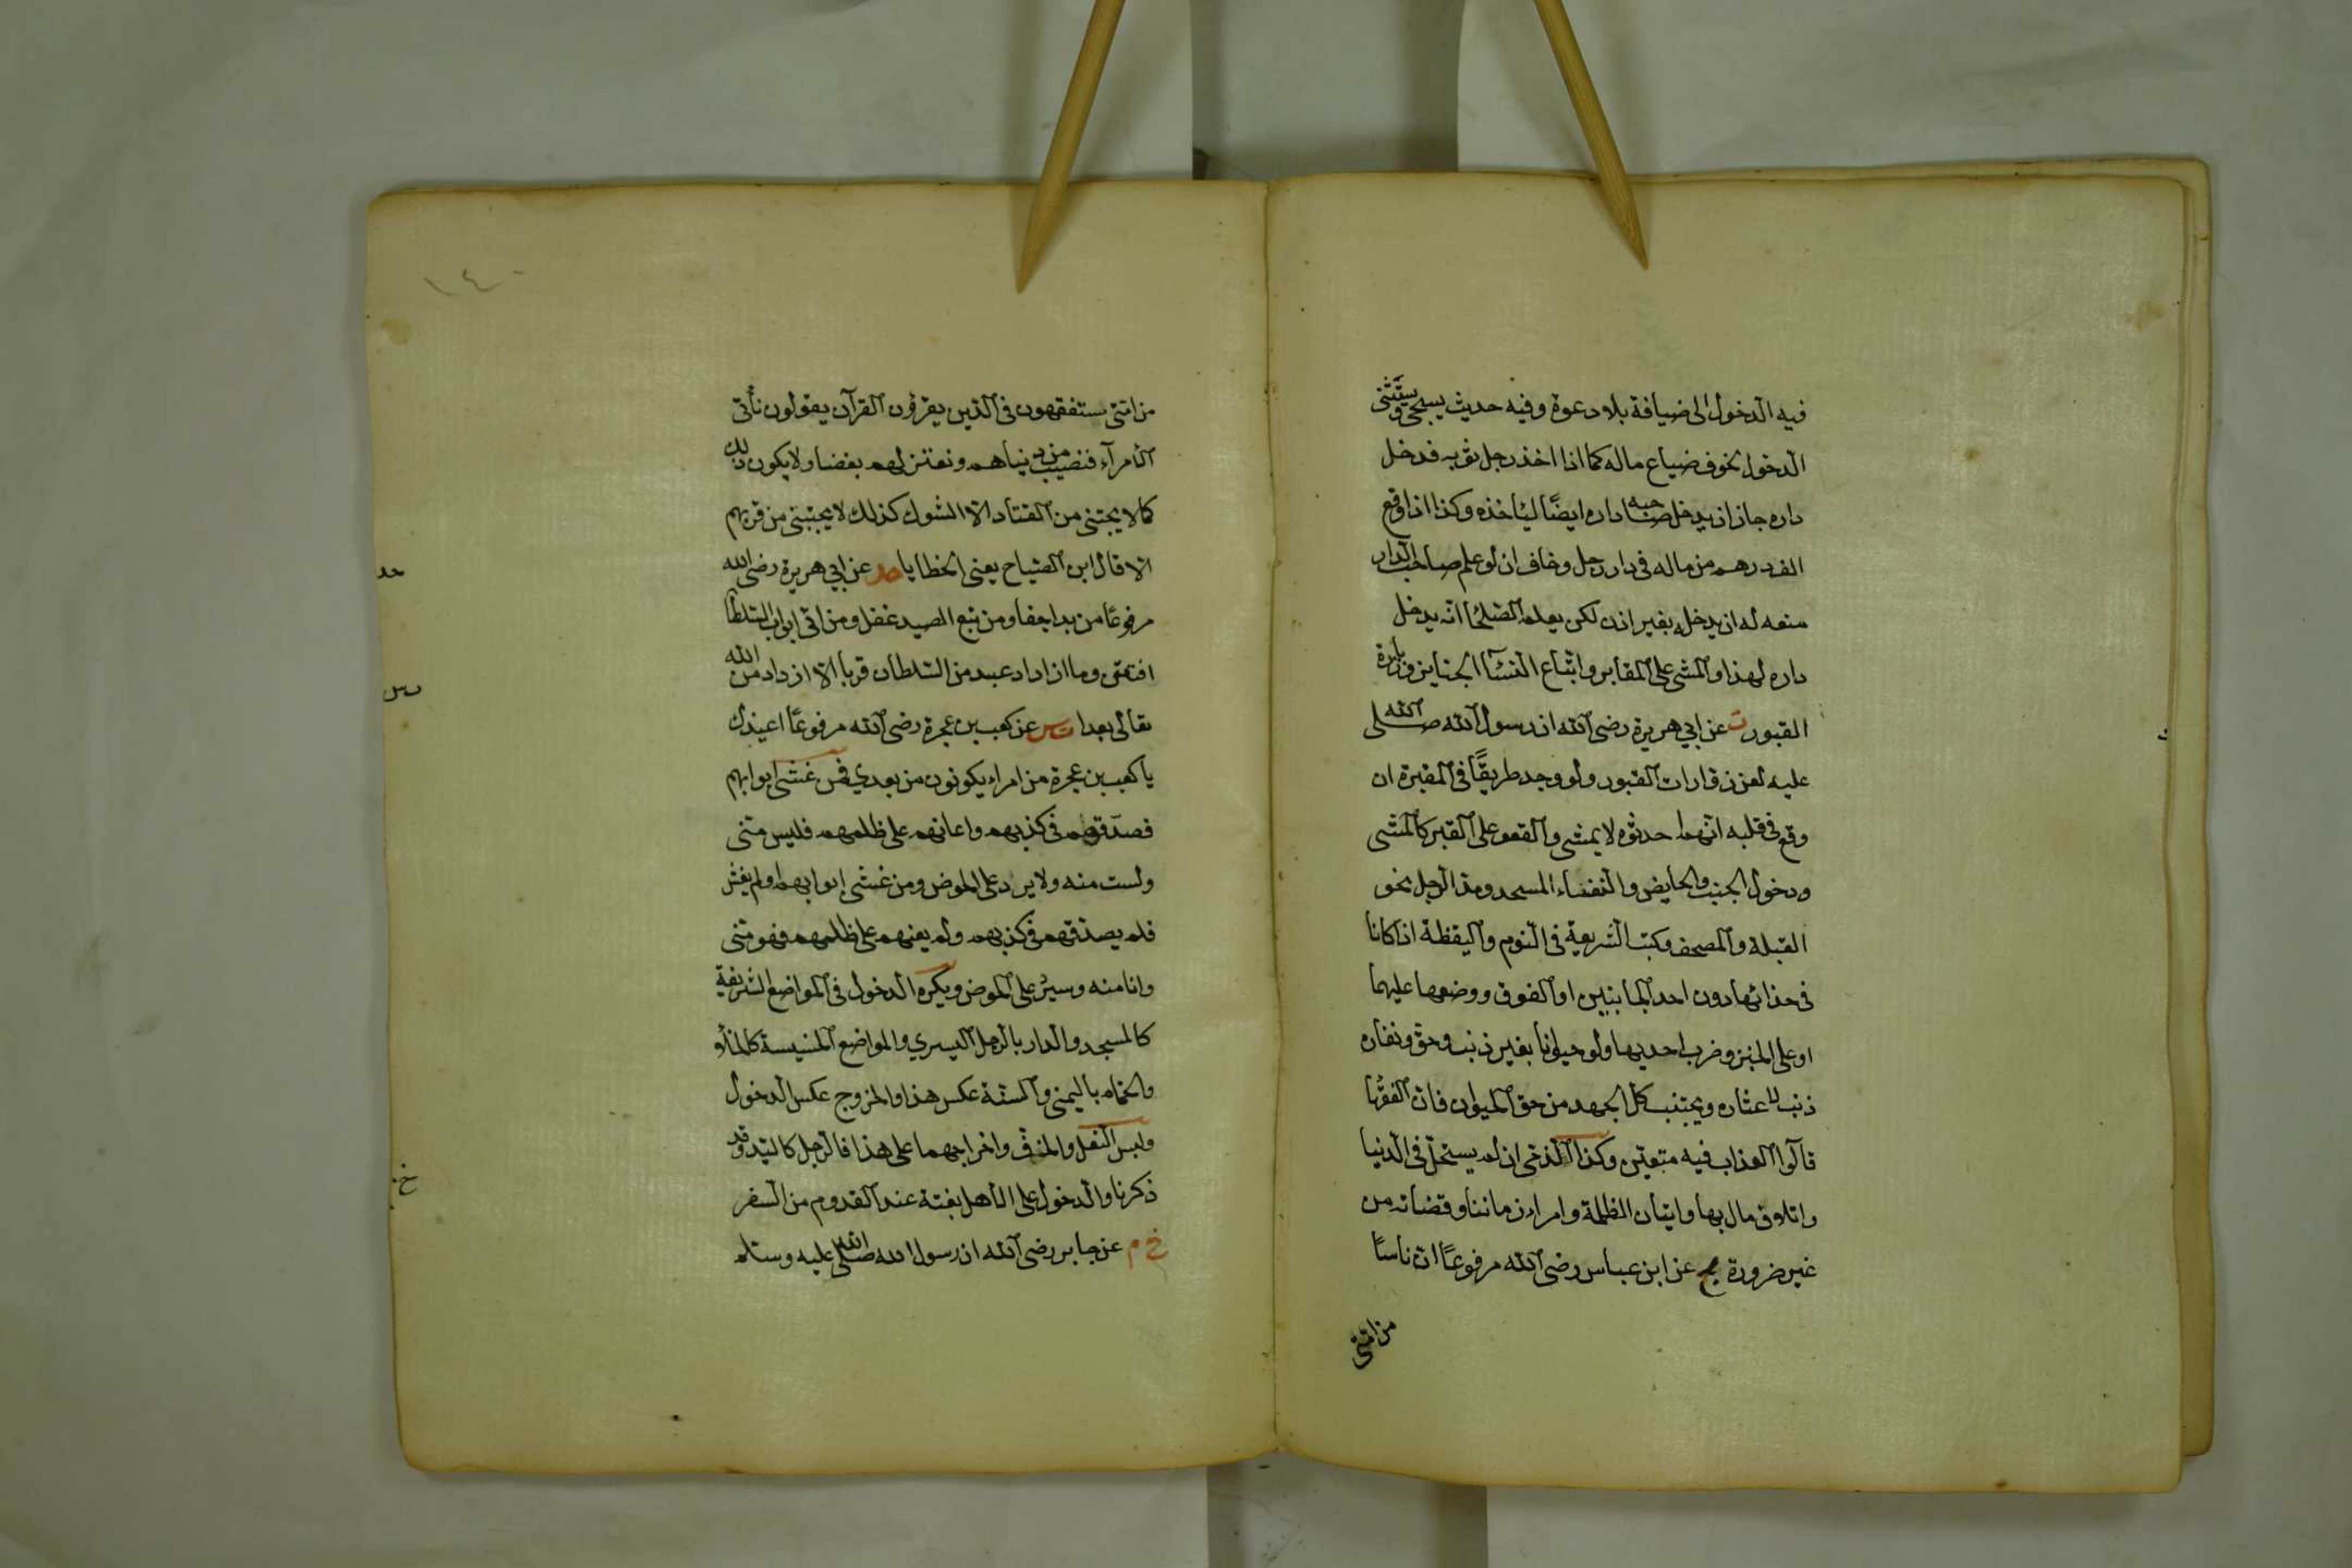 فيه الدخول الى ضيافة بلا دعوة وفيه حديث يسبحى ويستثنى
الدخول لخوف ضياع ماله كما اذا اخذ رجل ثوبه فدخل
داره جاز ان يدخل صاحبه داره ايضًا ليأخذه وكذا اذا وقع
الف درهم من ماله فى دار رجل وخاف ان لو علم صاحب الدار
منعه له ان يدخله بغير اذن لكن يعلم الصلحا انه يدخل
داره لهذا والمشى على المقابر واتباع النسآ الجنايز وزيارة
القبور ت عن ابي هريرة رضى الله ان رسول الله صلى الله
عليه لعن زوارات القبور ولو وجد طريقًا فى المقبرة ان
وقع فى قلبه انهم احدثوه لا يمشى والقعو على القبر كالمشى
ودخول الجنب والحايض والنفساء المسجد ومد الرجل نحو
القبلة والمصحف وكتب الشريعة فى النوم واليقظة اذا كانا
فى حذائها دون احد الجانبين او الفوق ووضعها عليهما
او على الخبز وضرب احد بها ولو حيوانا بغير ذنب وحق ونفاره
ذنب لا عثاره ويجتنب كل الجهد من حق الحيوان فان الفقها
قالوا العذاب فيه متعين وكذا الذمى ان لم يستحل فى الدنيا
واتلاف مال بها واتيان الظلمة وامراء زماننا وقضاته من
غير ضرورة مج عن ابن عباس رضى الله مرفوعًا ان ناسًا
من امتى
١٤٠
من امتى يستفقهون فى الدين يقرؤن القرآن يقولون نأتى
الامرآء فنصيب من دنياهم ونعتزلهم بفضا ولا يكون ذلك
كما لا يجتنى من القتاد الا الشوك كذلك لا يجتنى من قربهم
الا قال ابن الصباح يعنى الخطايا حد عن ابي هريرة رضى الله
حد
مرفوعًا من بدا جفا ومن تبع الصيد غفل ومن اتى ابواب السلطا
افتتن وما ازداد عبد من السلطان قربا الا ازداد من الله
تعالى بعدا ت س عن كعب بن عجرة رضى الله مرفوعًا اعيذك
ت س
يا كعب بن عجرة من امراء يكونون من بعدي فمن غشى ابوابهم
فصدقهم فى كذبهم واعانهم على ظلمهم فليس منى
ولست منه ولا يرد على الحوض ومن غشى ابوابهم او لم يغش
فلم يصدقهم فى كذبهم ولم يعنهم على ظلمهم فهو منى
وانا منه وسيرد على الحوض ويكره الدخول فى المواضع الشريفة
كالمسجد والدار بالرجل اليسري والمواضع الخسيسة كالخلاء
والحمام باليمنى والسنة عكس هذا والخروج عكس الدخول
ولبس النعل والخف واخراجهما على هذا فالرجل كاليد وقد
خ م
ذكرنا والدخول على الاهل بغتة عند القدوم من السفر
خ م عن جابر رضى الله ان رسول الله صلى الله عليه وسلم